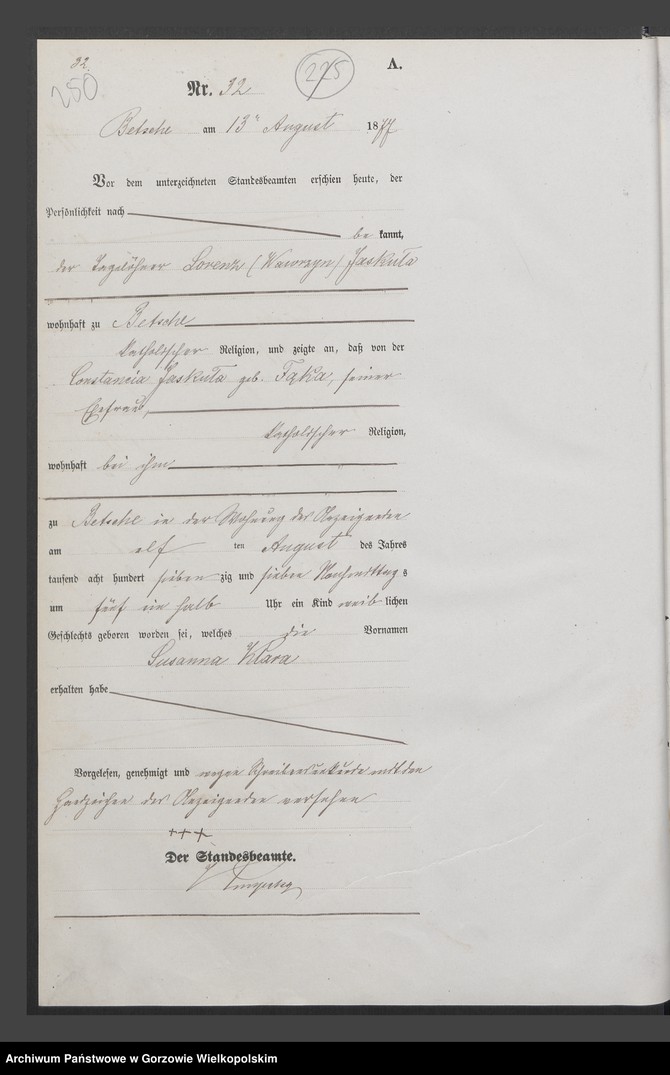 32.
250
275
A.
Nr. 32
Betsche am 13ten August 1877
Vor dem unterzeichneten Standesbeamten erschien heute, der
Persönlichkeit nach
be kannt,
der Tagelöhner Lorenz (Wawrzyn) Jaskuła
wohnhaft zu Betsche
katholischer Religion, und zeigte an, daß von der
Constancia Jaskuła geb. Fąka, seiner
Ehefrau,
katholischer Religion,
wohnhaft bei ihm
zu Betsche in der Wohnung des Anzeigenden
am elf ten August des Jahres
tausend acht hundert sieben zig und sieben Nachmittag s
um fünf ein halb Uhr ein Kind weib lichen
Geschlechts geboren worden sei, welches die Vornamen
Susanna Klara
erhalten habe
Vorgelesen, genehmigt und wegen Schreibensunkunde mit den
Handzeichen des Anzeigenden versehen
+++
Der Standesbeamte.
Archiwum Państwowe w Gorzowie Wielkopolskim